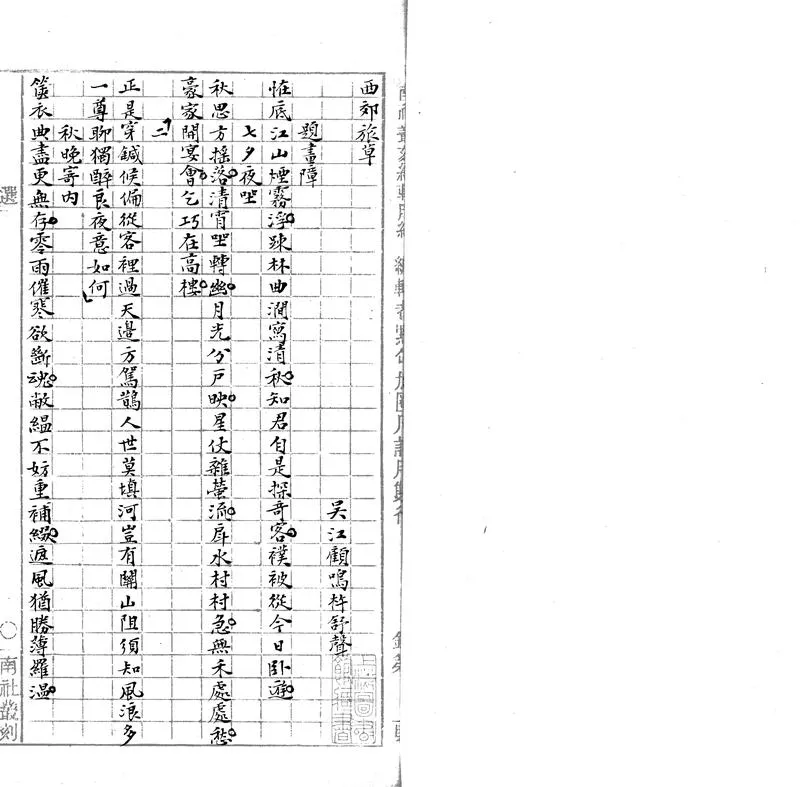 西郊旅草
吳江顧鳴杵舒聲
題畫障
恠底江山煙霧浮疎林曲澗寫清秋知君自是探奇客襆被從今日臥遊
七夕夜坐
秋思方搖落清宵坐轉幽月光分戶映星仗雜螢流戽水村村急無禾處處愁
豪家開宴會乞巧在高樓
二
正是穿鍼候偏從客裡過天邊方駕鵲人世莫填河豈有關山阻須知風浪多
一尊聊獨醉良夜意如何
秋晚寄內
篋衣典盡更無存零雨催寒欲斷魂敝緼不妨重補綴遮風猶勝薄羅溫
選
南社叢刻